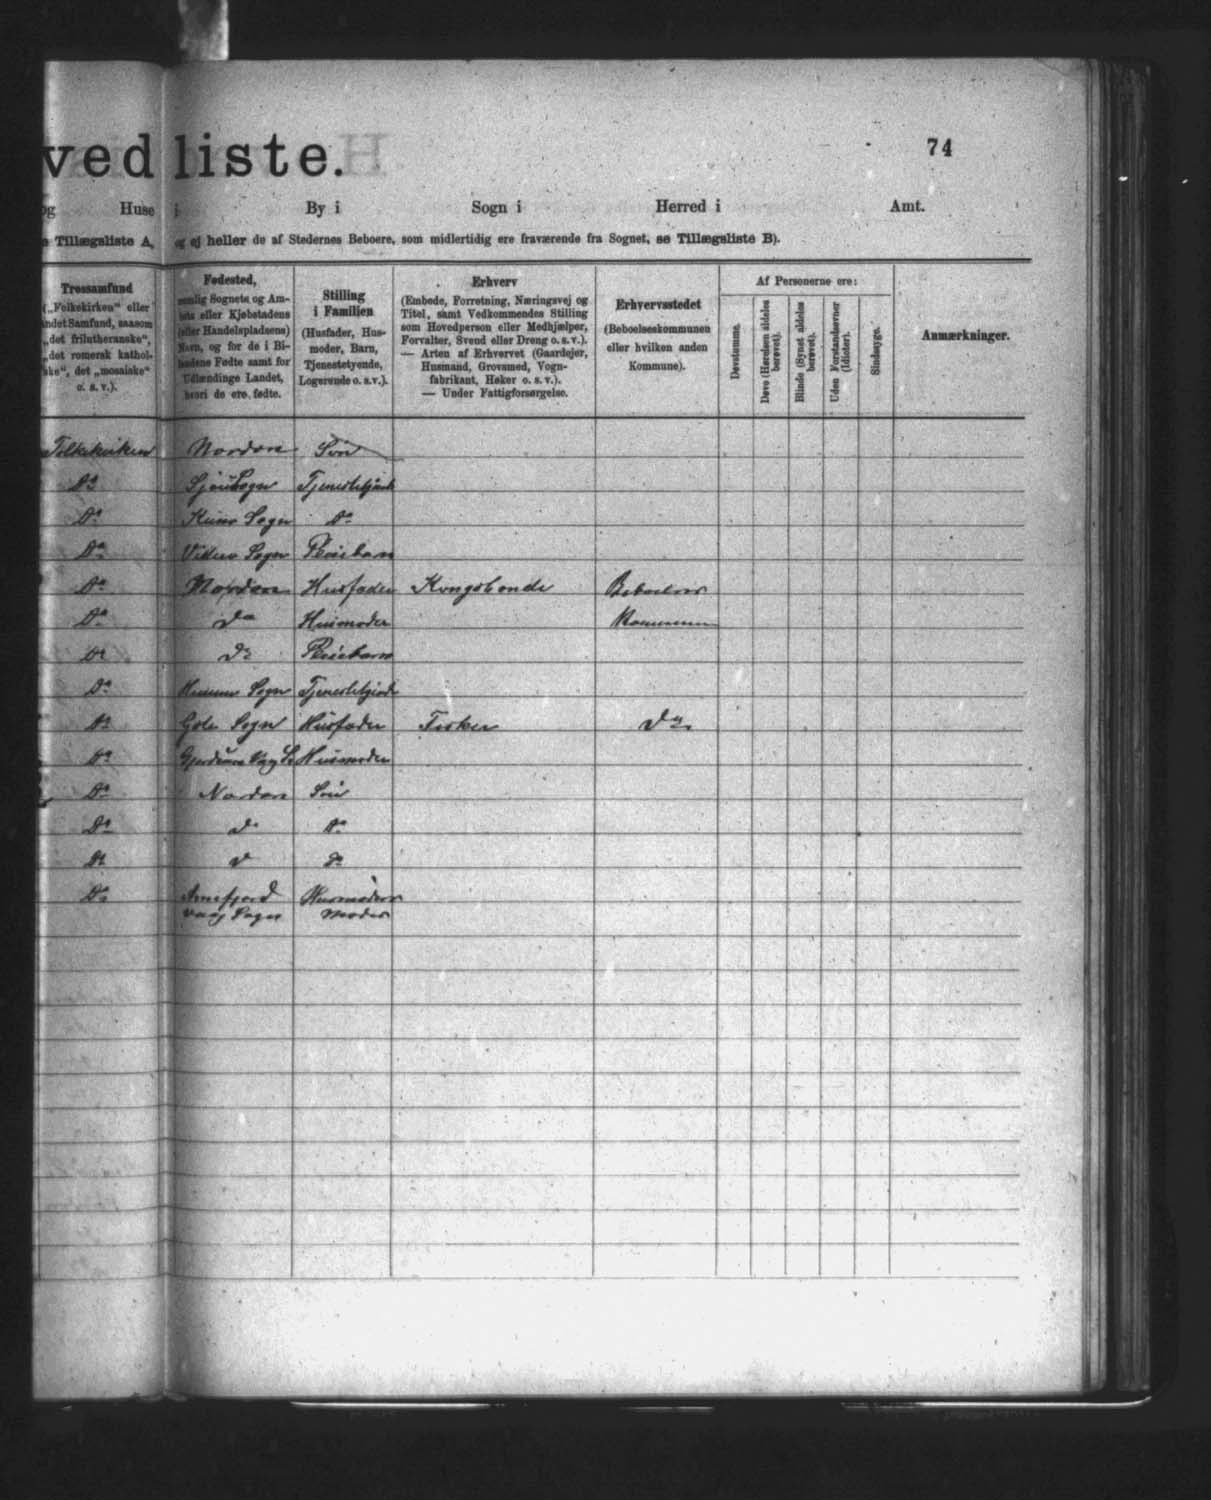 ved liste.
74
og Huse i By i Sogn i Herred i Amt.
Tillægsliste A, og ej heller de af Stedernes Beboere, som midlertidig ere fraværende fra Sognet, se Tillægsliste B).
Trossamfund
(„Folkekirken“ eller
andet Samfund, saasom
„det frilutheranske“,
„det romersk kathol-
ske“, det „mosaiske“
o. s. v.).
Fødested,
nemlig Sognets og Am-
tets eller Kjøbstadens
(eller Handelspladsens)
Navn, og for de i Bi-
landene Fødte samt for
Udlændinge Landet,
hvori de ere fødte.
Stilling
i Familien
(Husfader, Hus-
moder, Barn,
Tjenestetyende,
Logerende o. s. v.).
Erhverv
(Embede, Forretning, Næringsvej og
Titel, samt Vedkommendes Stilling
som Hovedperson eller Medhjælper,
Forvalter, Svend eller Dreng o. s. v.).
— Arten af Erhvervet (Gaardejer,
Husmand, Grovsmed, Vogn-
fabrikant, Høker o. s. v.).
— Under Fattigforsørgelse.
Erhvervsstedet
(Beboelseskommunen
eller hvilken anden
Kommune).
Af Personerne ere:
Døvstumme.
Døve (Hørelsen aldeles
berøvet).
Blinde (Synet aldeles
berøvet).
Uden Forstandsevner
(Idioter).
Sindssyge.
Anmærkninger.
Folkekirken Nordøre Søn
Do Sogn
Do Sogn Do
Do Sogn Pleiebarn
Do Nordøre Husfader Kongsbonde Beboelses
Do Do Husmoder Kommunen
Do Do Pleiebarn
Do Sogn
Do Sogn Husfader Fisker Do
Do Husmoder
Do Nordøre Søn
Do Do Do
Do Do Do
Do Arnefjord Husmoders
vaag Sogn Moder